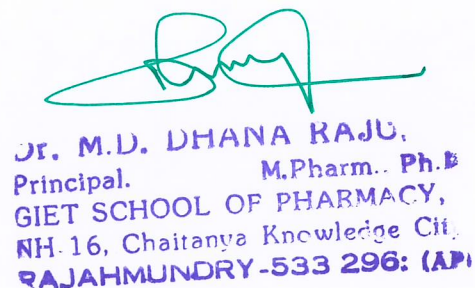 Dr. M.D. DHANA RAJU,
Principal. M.Pharm.. Ph.D
GIET SCHOOL OF PHARMACY,
NH-16, Chaitanya Knowledge City
RAJAHMUNDRY-533 296: (AP)